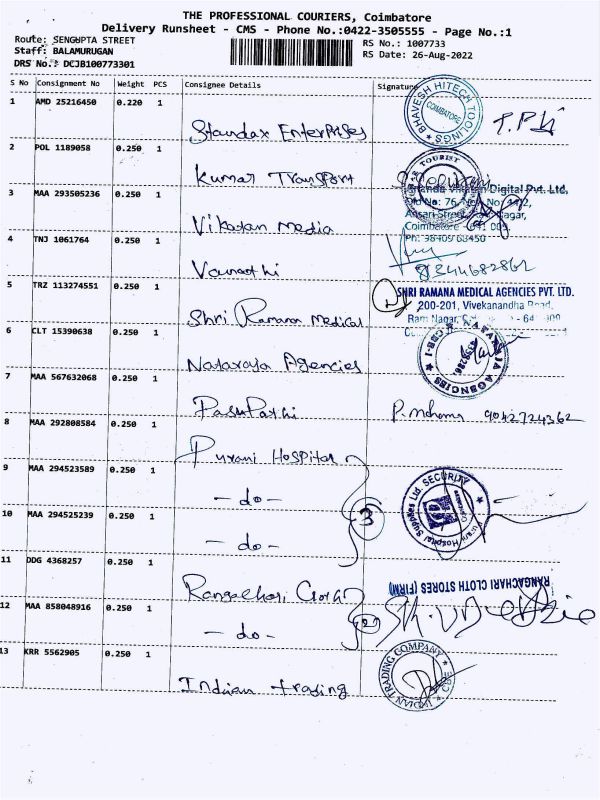 THE PROFESSIONAL COURIERS, Coimbatore
Delivery Runsheet - CMS - Phone No.:0422-3505555 - Page No.:1
Route: SENGUPTA STREET
RS No.: 1007733
Staff: BALAMURUGAN
RS Date: 26-Aug-2022
DRS No.: DCJB100773301
S No Consignment No Weight PCS Consignee Details Signature
1 AMD 25216450 0.220 1
Standax Enterprises
BHAVESH HITECH TOOLINGS
COIMBATORE
2 POL 1189058 0.250 1
Kumar Transport
TOURIST
3 MAA 293505236 0.250 1
Vikatan Media
Digital Pvt. Ltd,
Coimbatore - 641 009
Ph: 98409 68450
4 TNJ 1061764 0.250 1
9344682862
5 TRZ 113274551 0.250 1
Shri Ramana Medical
SHRI RAMANA MEDICAL AGENCIES PVT. LTD.
200-201, Vivekanandha Road,
Ram Nagar,
6 CLT 15390638 0.250 1
Nataraja Agencies
NATARAJA AGENCIES
CBE-1
7 MAA 567632068 0.250 1
PasuPathi
9042724362
8 MAA 292808584 0.250 1
Purani Hospital
9 MAA 294523589 0.250 1
- do -
3
Hospital Supplies Ltd SECURITY
10 MAA 294525239 0.250 1
- do -
11 DDG 4368257 0.250 1
Rangachari Cloth
RANGACHARI CLOTH STORES (FIRM)
12 MAA 858048916 0.250 1
- do -
2
13 KRR 5562905 0.250 1
Indian trading
INDIAN TRADING COMPANY